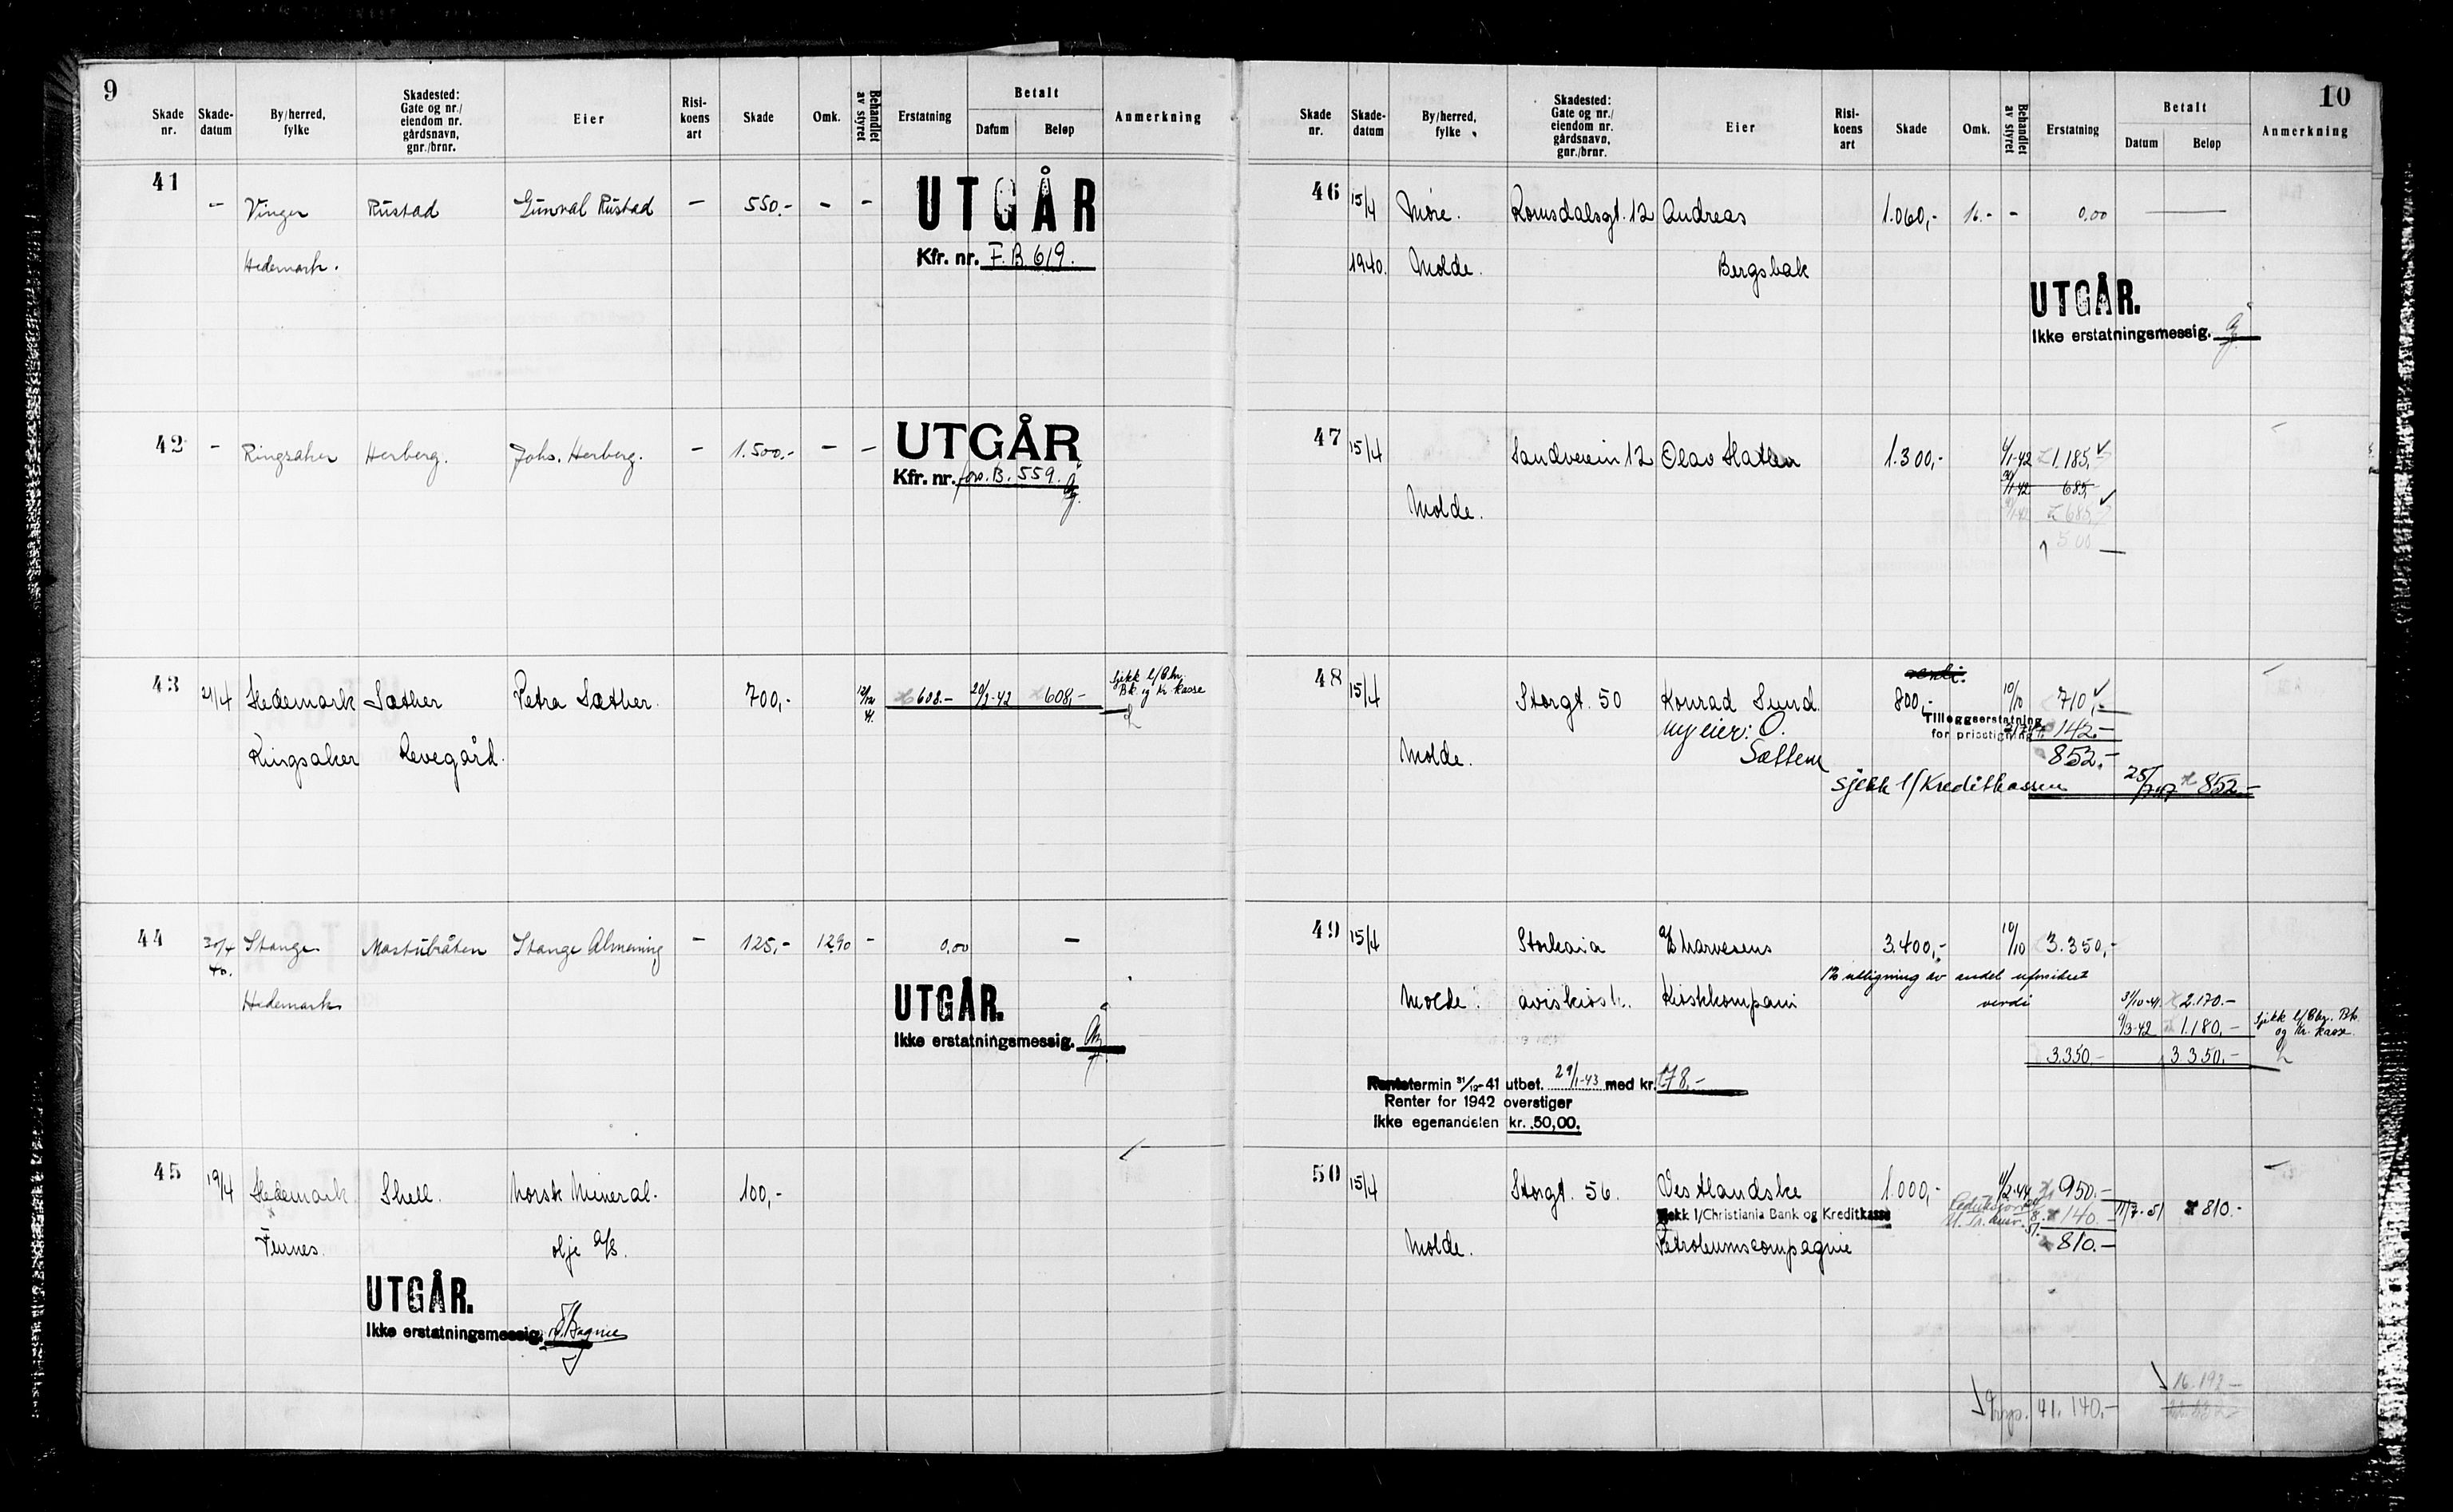 9
Skade nr.
Skade-datum
By/herred, fylke
Skadested: Gate og nr./ eiendom nr. gårdsnavn, gnr./brnr.
Eier
Risi-koens art
Skade
Omk.
Behandlet av styret
Erstatning
Betalt
Datum
Beløp
Anmerkning
41
- Vinger Rustad Gunval Rustad - 550.- - -
UTGÅR
Kfr. nr. F.B. 619.
Hedemark.
42 - Ringsaker Herberg. Johs. Herberg. - 1.500.- - -
UTGÅR
Kfr. nr. fors.B. 559.
43 21/4 Hedemark Sæther Petra Sæther. 700,- 608.- 20/3-42 608,-
Sjekk l/Chr. Bk. og Kr. kasse
Ringsaker Revegård.
44 30/4 40. Stange Mastubråten Stange Almenning - 125,- 12.90 - 0.00 -
Hedemark
UTGÅR.
Ikke erstatningsmessig.
45 19/4 Hedemark Shell. Norsk Mineral- 100,-
Furnes. olje A/S.
UTGÅR.
Ikke erstatningsmessig.
10
Skade nr.
Skade-datum
By/herred, fylke
Skadested: Gate og nr./ eiendom nr. gårdsnavn, gnr./brnr.
Eier
Risi-koens art
Skade
Omk.
Behandlet av styret
Erstatning
Betalt
Datum
Beløp
Anmerkning
46 15/4 Møre. Romsdalsgt. 12 Andreas 1.060,- 16.- - 0,00
1940. Molde. Bergsbak
UTGÅR.
Ikke erstatningsmessig.
47 15/4 Sandveien 12 Olav Hatlen 1.300,- 6/1-42 1.185,
685,
Molde. 685,
500
48 15/4 Storgt. 50 Konrad Sund. 800,- 10/10 710,-
Tilleggserstatning for prisstigning 142.-
Ny eier: O. Sættem
Molde. 852.-
Sjekk l/Kreditkassen 852.-
49 15/4 Storkaia A/S Narvesens 3.400,- 10/10 3.350,-
Til utligning av andel uforsikret verdi
Molde. aviskiosk. Kioskkompani
31/10-41. 2.170.-
9/3-42 1.180,-
Sjekk l/Chr. Bk. og Kr. kasse
3.350.- 3.350,-
Rentetermin 31/12-41 utbet. 29/1-43 med kr. 178.-
Renter for 1942 overstiger
ikke egenandelen kr. 50,00.
50 15/4 Storgt. 56. Vestlandske 1.000,- 11/2-44 950.-
Sjekk l/Christiania Bank og Kreditkasse
140. 11/7-51 810.-
Molde. Petroleumscompagnie 810.-
16.192-
41.140,-